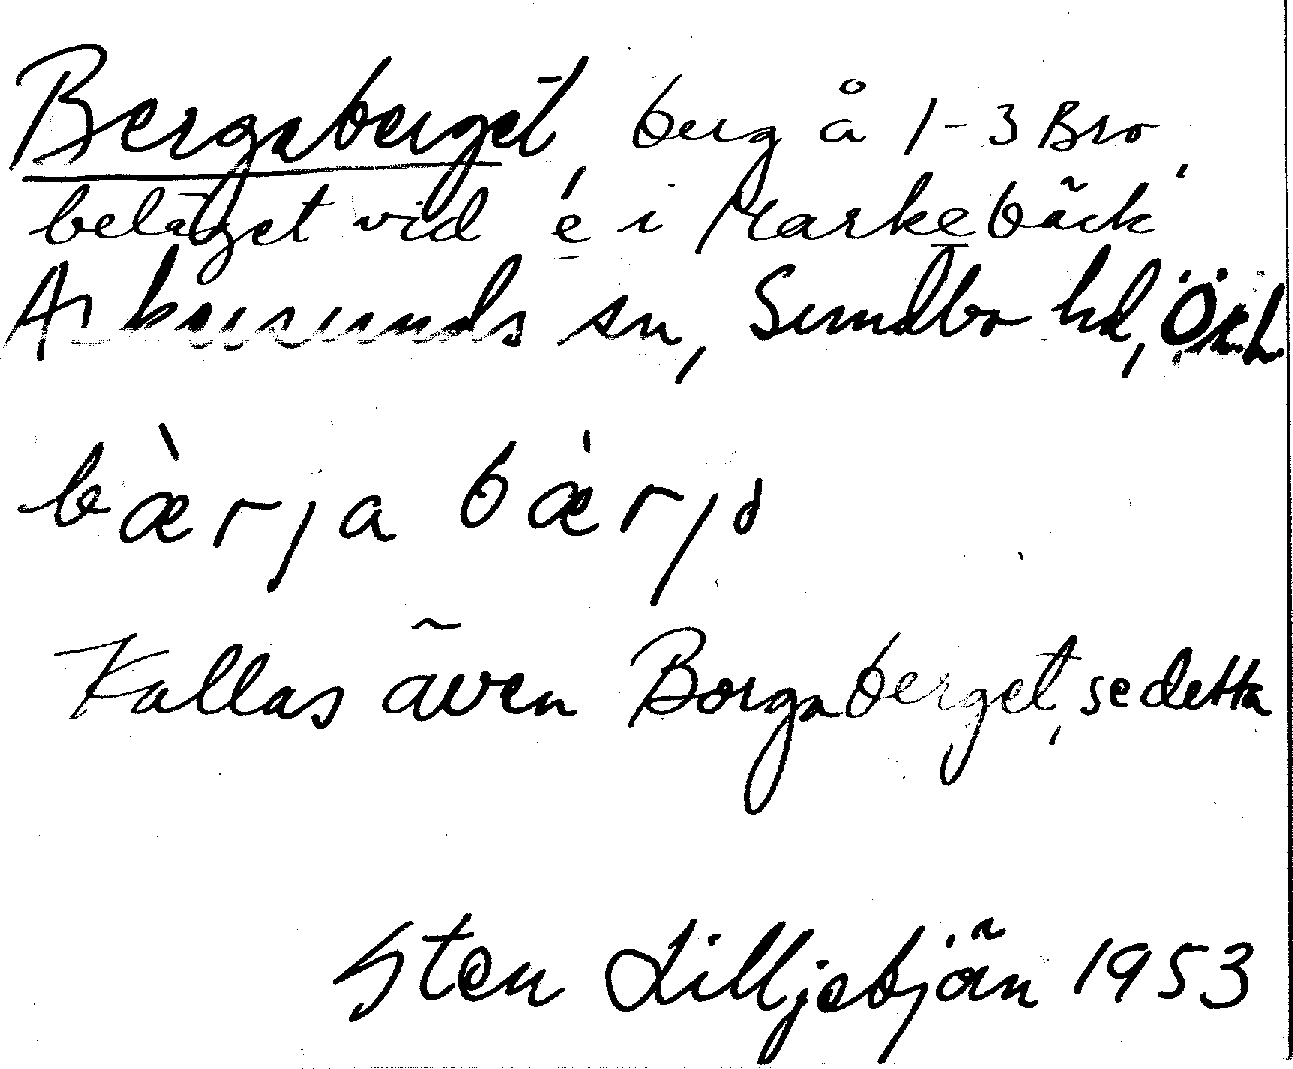 Bergaberget, berg å 1-3 Bro,
beläget vid é i Markebäck
Askersunds sn, Sundbo hd, Ör.l.
bæ̀rja bæ̀rjə
Kallas även Borgaberget, se detta
Sten Lilljebjän 1953